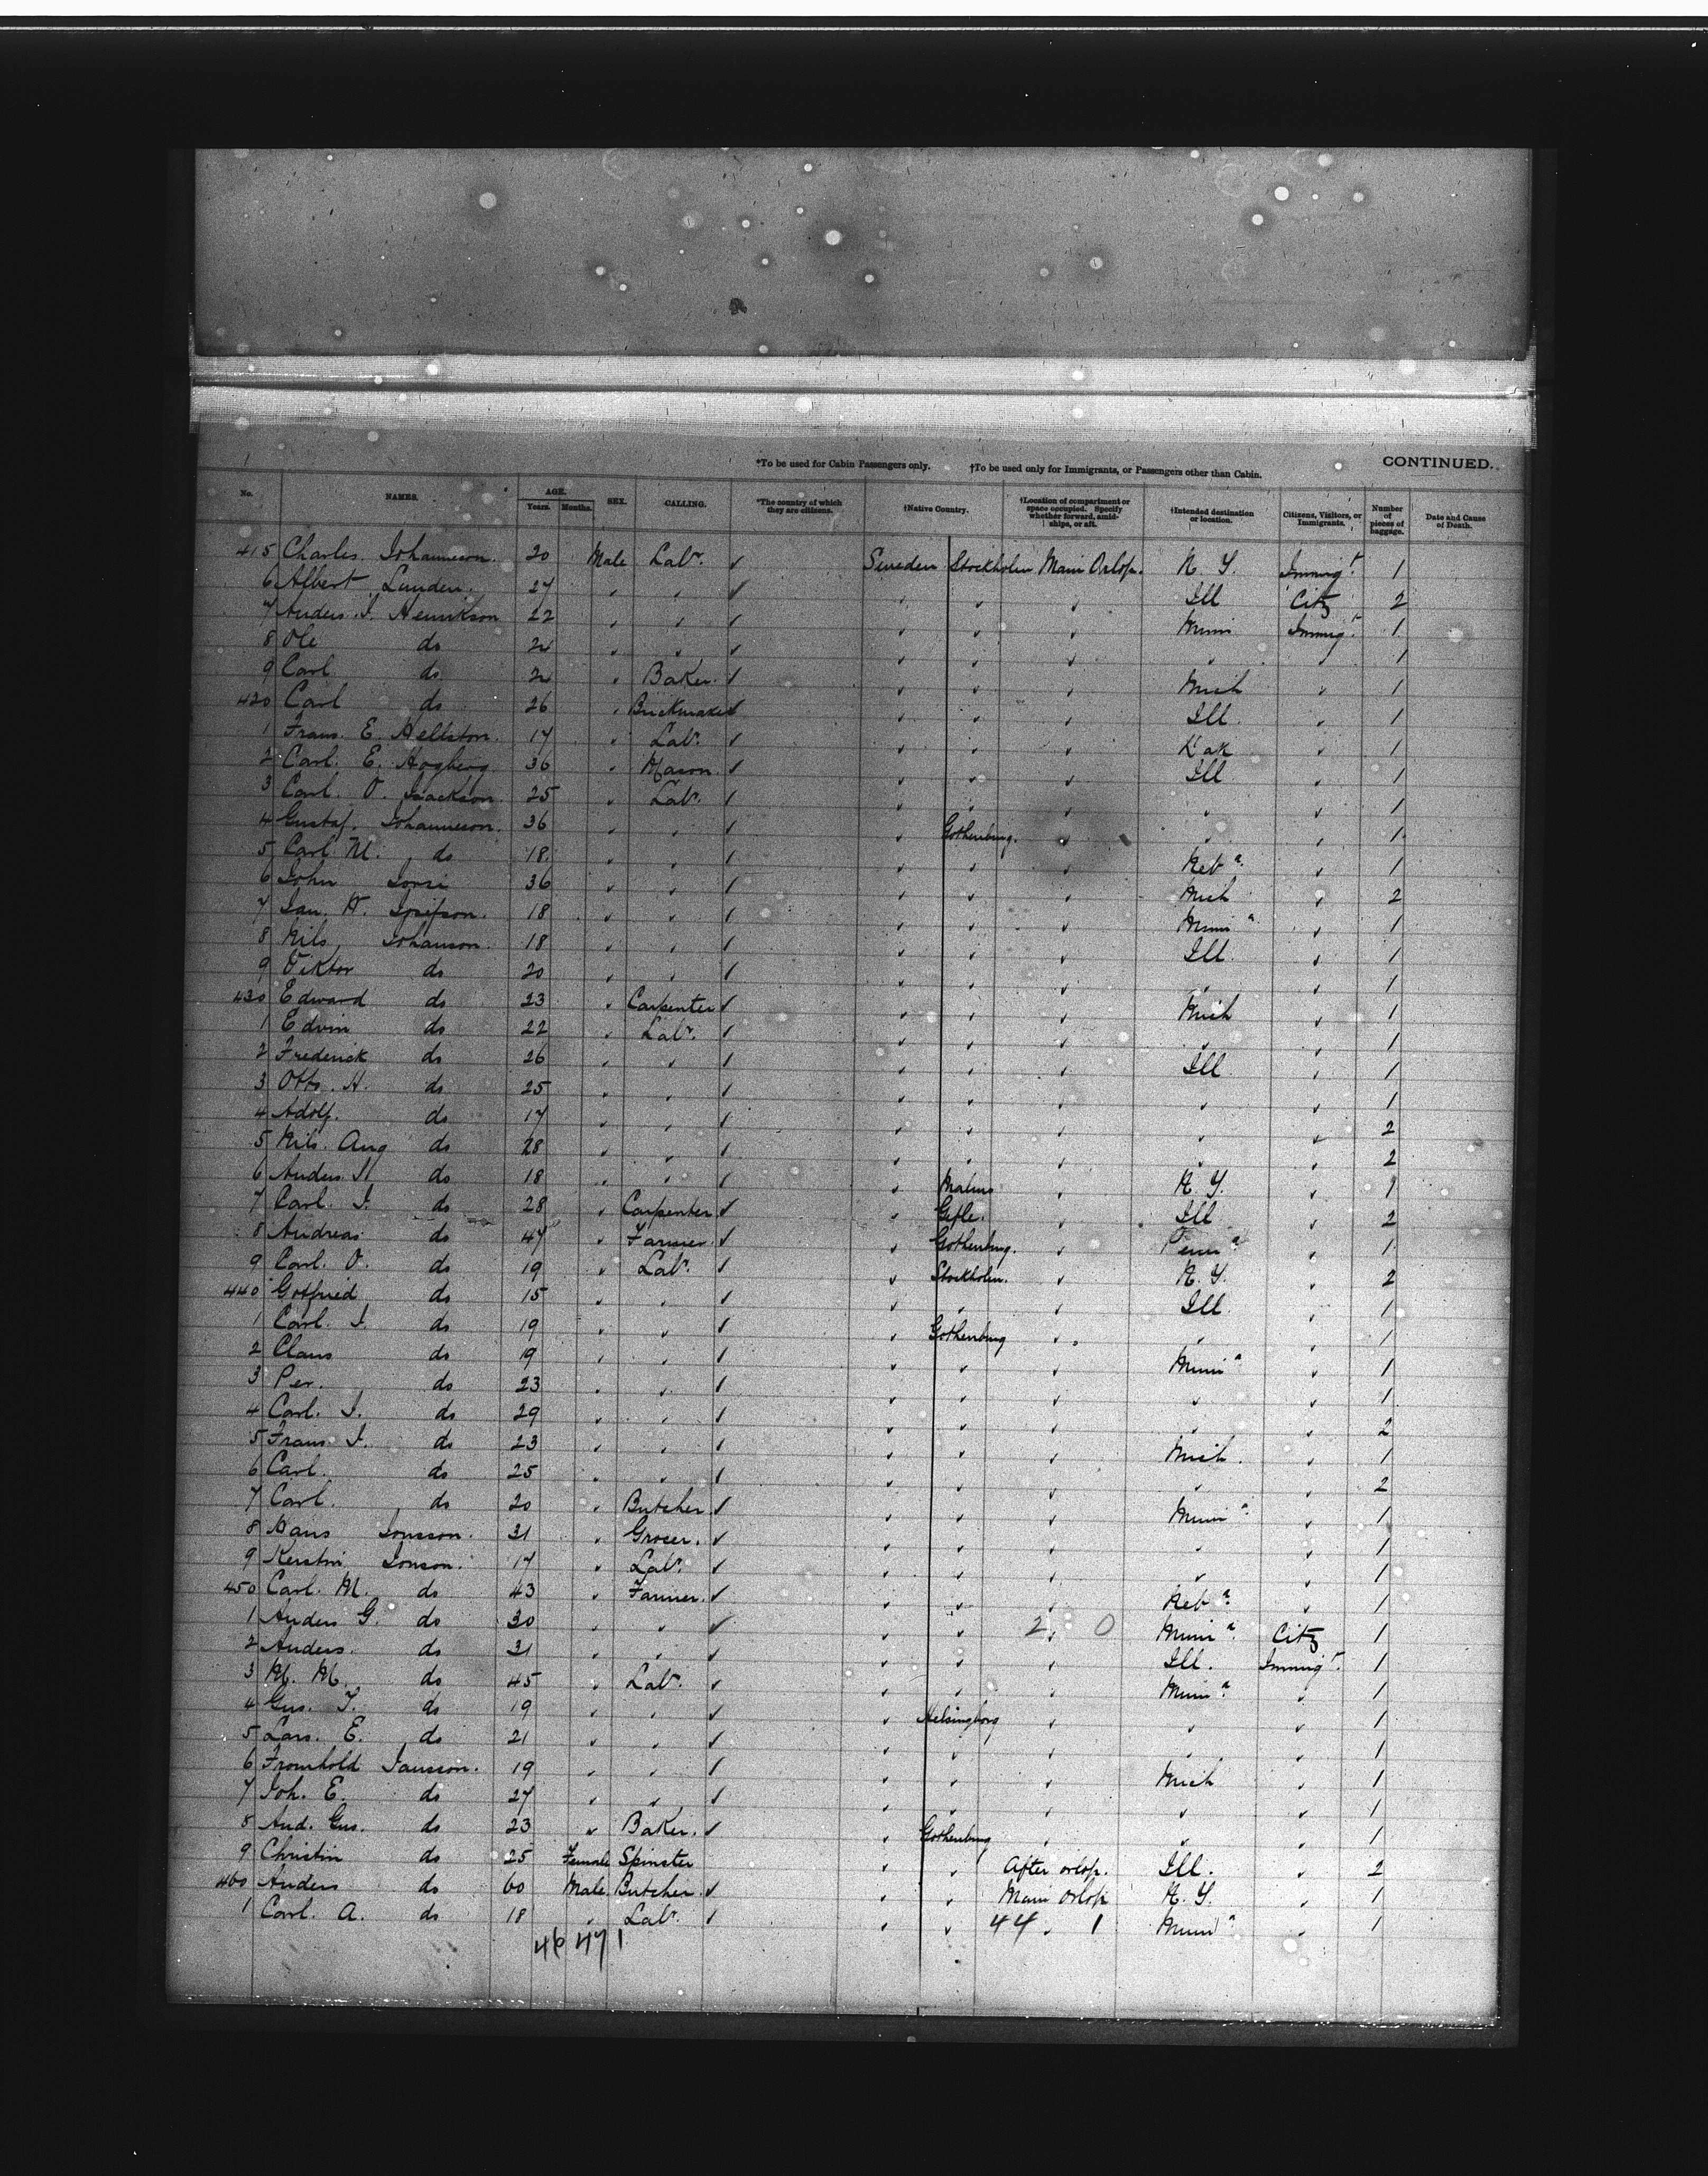 *To be used for Cabin Passengers only. †To be used only for Immigrants, or Passengers other than Cabin. CONTINUED.
No. NAMES. AGE. Years. Months. SEX. CALLING. *The country of which they are citizens. †Native Country. †Location of compartment or space occupied. Specify whether forward, amidships, or aft. †Intended destination or location. Citizens, Visitors, or Immigrants. Number of pieces of baggage. Date and Cause of Death.
415 Charles Johanneson. 20 Male Labr. ✓ Sweden Stockholm Main Orlop. N. Y. Immigt. 1
6 Albert Lunden. 27 " " ✓ " " " Ill Citz 2
7 Anders. J. Henrikson 22 " " ✓ " " " Minn Immigt. 1
8 Ole do 24 " " ✓ " " " " " 1
9 Carl do 24 " Baker. ✓ " " " Mich " 1
420 Carl do 26 " Brickmaker ✓ " " " Ill. " 1
1 Frans. E. Hellston. 17 " Labr. ✓ " " " Dak " 1
2 Carl. E. Hogberg 36 " Mason. ✓ " " " Ill " 1
3 Carl. O. Isackson 25 " Labr. ✓ " " " " " 1
4 Gustaf. Johanneson. 36 " " ✓ " Gothenburg. " " " 1
5 Carl M. do 18 " " ✓ " " " Neba. " 1
6 John 36 " " ✓ " " " Mich " 2
7 18 " " ✓ " " " Minna " 1
8 Nils Johanson. 18 " " ✓ " " " Ill. " 1
9 Viktor do 20 " " ✓ " " " " " 1
430 Edward do 23 " Carpenter ✓ " " " Mich " 1
1 Edvin do 22 " Labr. ✓ " " " " " 1
2 Frederick do 26 " " ✓ " " " Ill " 1
3 Otto. H. do 25 " " ✓ " " " " " 1
4 Adolf. do 17 " " ✓ " " " " " 2
5 Nils. Aug do 28 " " ✓ " " " " " 2
6 Anders do 18 " " ✓ " Malmo " N. Y. " 1
7 Carl. J. do 28 " Carpenter ✓ " Gefle. " Ill " 2
8 Andreas do 47 " Farmer. ✓ " Gothenburg. " Penna " 1
9 Carl. O. do 19 " Labr. ✓ " Stockholm. " N. Y. " 2
440 Gotfried do 15 " " ✓ " " " Ill. " 1
1 Carl. J. do 19 " " ✓ " Gothenburg " " " 1
2 Claus do 19 " " ✓ " " " Minna " 1
3 Per. do 23 " " ✓ " " " " " 1
4 Carl. J. do 29 " " ✓ " " " " " 2
5 Frans J. do 23 " " ✓ " " " Mich. " 1
6 Carl. do 25 " " ✓ " " " " " 2
7 Carl. do 20 " Butcher. ✓ " " " Minna " 1
8 Hans Jonsson. 31 " Grocer. ✓ " " " " " 1
9 Kerstin Jonson. 17 " Labr. ✓ " " " " " 1
450 Carl. M. do 43 " Farmer. ✓ " " " Neba. " 1
1 Anders G. do 30 " " ✓ " " 2 " 0 Minna. Citz 1
2 Anders. do 31 " " ✓ " " " Ill. Immigt. 1
3 M. M. do 45 " Labr. ✓ " " " Minna. " 1
4 Gus. T. do 19 " " ✓ " Helsingborg " " " 1
5 Lars. E. do 21 " " ✓ " " " " " 1
6 Fromhold Jansson. 19 " " ✓ " " " Mich " 1
7 Joh. E. do 27 " " ✓ " " " " " 1
8 And. Gus. do 23 " Baker. ✓ " Gothenburg " " " 1
9 Christin do 25 Female Spinster " " After orlop. Ill. " 2
460 Anders do 60 Male. Butcher. ✓ " " Main orlop N. Y. " 1
1 Carl. A. do 18 " Labr. ✓ " " 44 " 1 Minna " 1
46 47 1